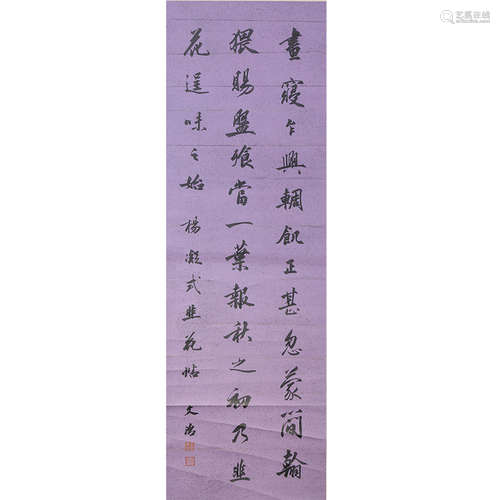 晝寢乍興輖飢正甚忽蒙簡翰
猥賜盤飱當一葉報秋之初乃韭
花逞味之始 楊凝式韭花帖 文